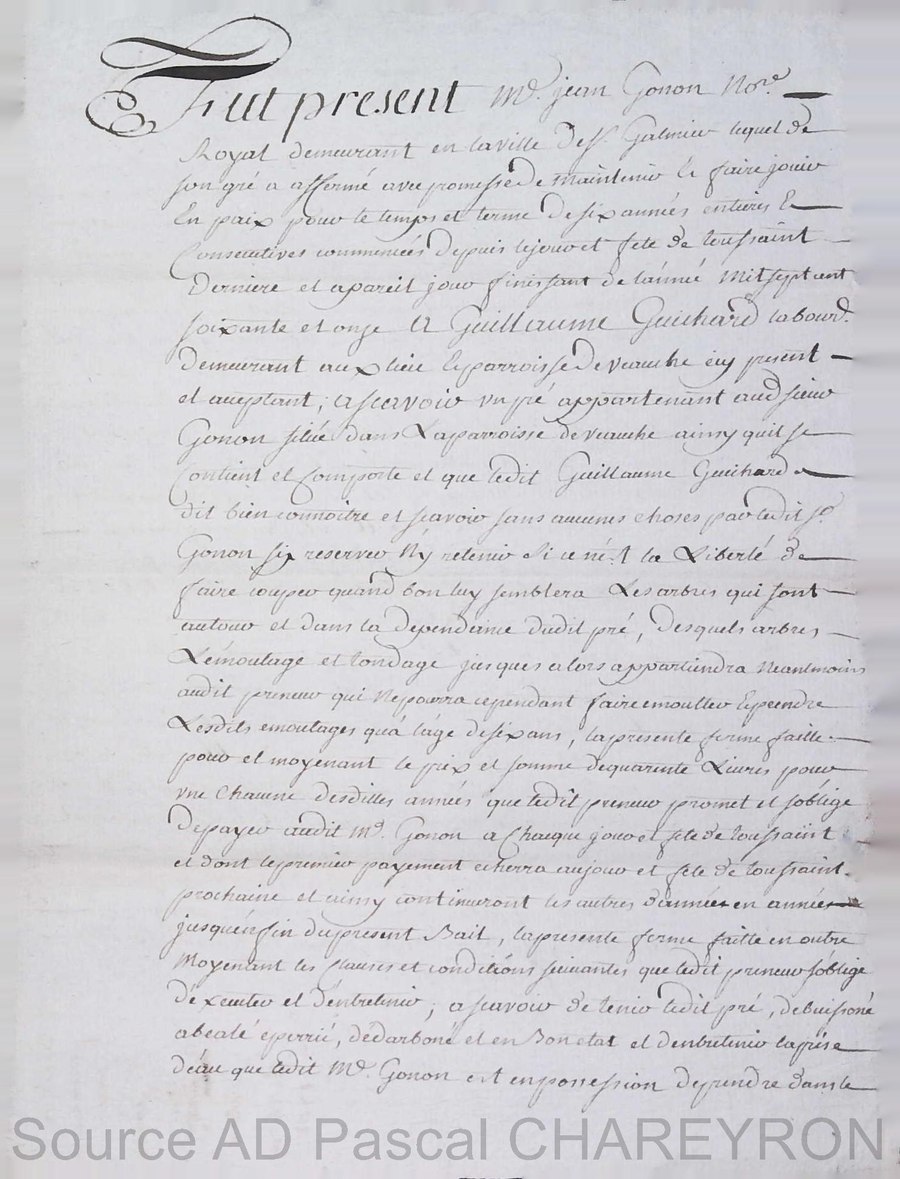 Fut present Me. jean Gonon Nore.
Royal demeurant en la ville de St. Galmier lequel de
son gré a affermé avec promesse de maintenir Et faire jouir
En paix pour le temps et terme de six années entieres Et
Consecutives commencées depuis le jour et fete de toussaint
Derniere et a pareil jour finissant de l'année Mil sept cent
soixante et onze a Guillaume Guichard labourd.
demeurant aux lieu Et parroisse de veauche icy present
et aceptant; a scavoir un pré appartenant aud sieur
Gonon situé dans La parroisse de veauche ainsy quil se
Contient et Comporte et que ledit Guillaume Guichard a
dit bien connoitre et scavoir sans aucunes choses par ledit sr.
Gonon s'y reserver N'y retenir Si ce n'est la Liberté de
faire couper quand bon luy semblera Les arbres qui sont
autour et dans la dependance dudit pré, desquels arbres
L'emoutage et tondage jusques alors appartiendra Neantmoins
audit preneur qui Ne pourra cependant faire emoutter Et prendre
Lesdits emoutages qu'a l'age de six ans, la presente ferme faitte
pour et moyenant le prix et somme de quarente Livres pour
une Chacune desdittes années que ledit preneur promet et s'oblige
de payer audit Me. Gonon a Chaque jour et fete de toussaint
et dont le premier payement echerra au jour et fete de toussaint
prochaine et ainsy continueront les autres d'années en années
jusqu'en fin du present Bail, la presente ferme faitte en outre
Moyenant les clauses et conditions suivantes que ledit preneur s'oblige
d'executer et d'entretenir; a scavoir de tenir ledit pré, debuissoné
abealé eperrié, dédarboné et en Bon etat et d'entretenir la prise
d'eau que ledit Me. Gonon est en possession de prendre dans le
Source AD Pascal CHAREYRON